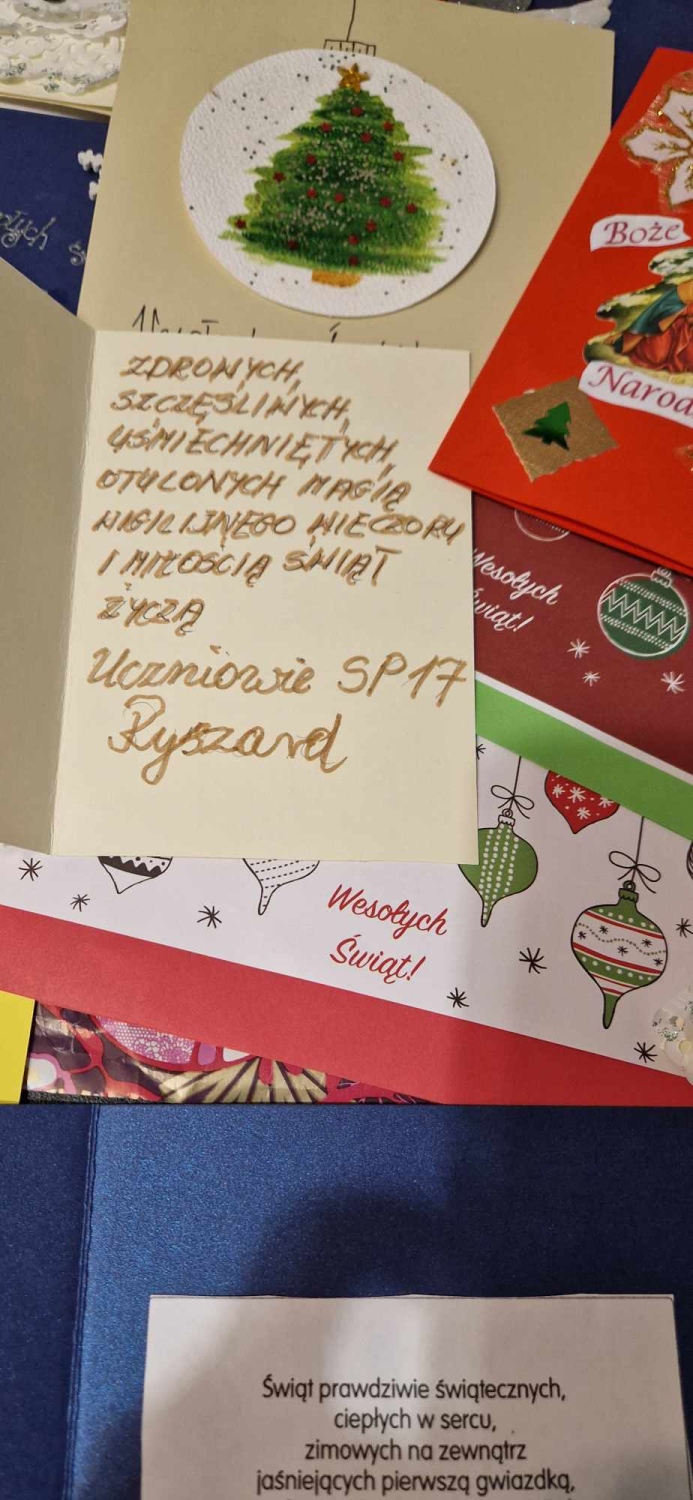 Boże
Narod
ZDROWYCH,
SZCZĘŚLIWYCH,
UŚMIECHNIĘTYCH,
OTULONYCH MAGIĄ
WIGILIJNEGO WIECZORU
I MIŁOŚCIĄ ŚWIĄT
ŻYCZĄ
Uczniowie SP17
Ryszard
Wesołych
Świąt!
Wesołych
Świąt!
Świąt prawdziwie świątecznych,
ciepłych w sercu,
zimowych na zewnątrz
jaśniejących pierwszą gwiazdką,